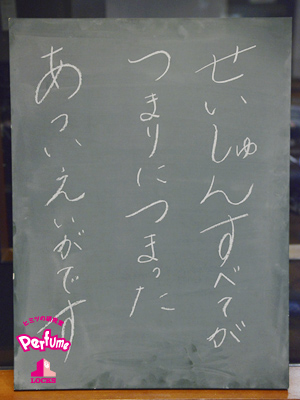 せいしゅんすべてが
つまりにつまった
あつい えいがです
ヒミツの研究所
Perfume
LOCKS